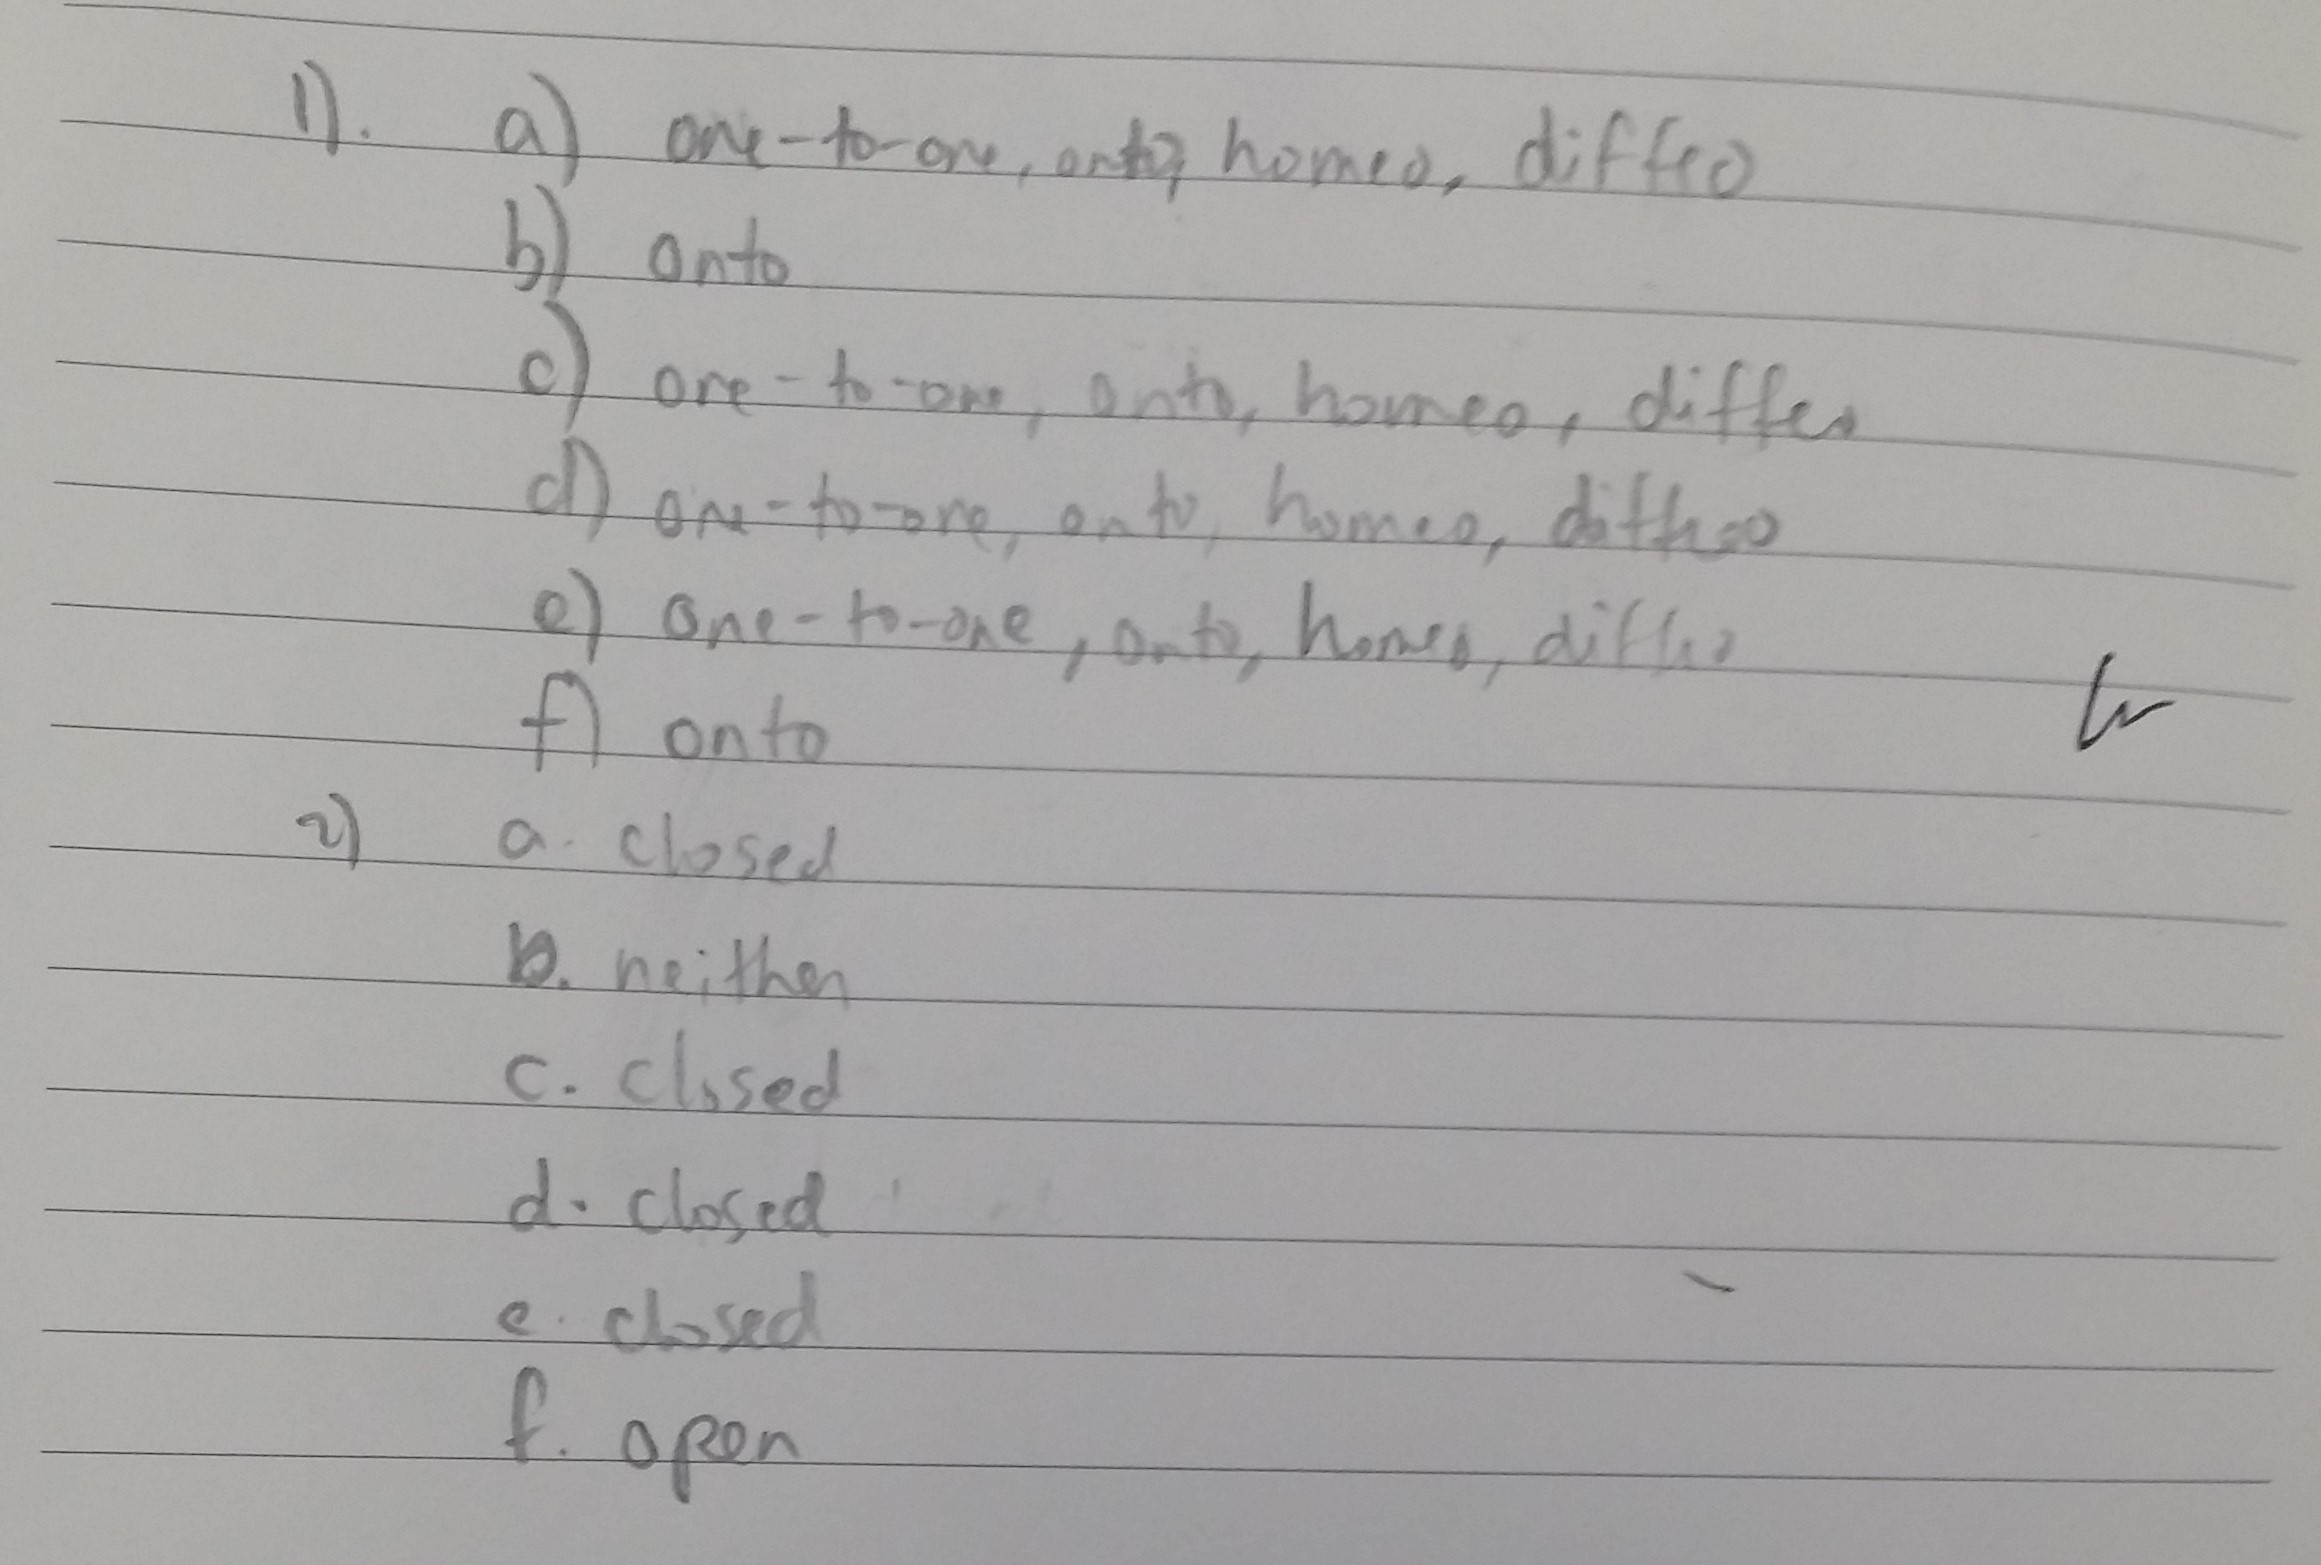 1). a) one-to-one, onto, homeo, diffeo
b) onto
c) one-to-one, onto, homeo, diffeo
d) one-to-one, onto, homeo, diffeo
e) one-to-one, onto, homeo, diffeo
f) onto
2) a. closed
b. neither
c. closed
d. closed
e. closed
f. open